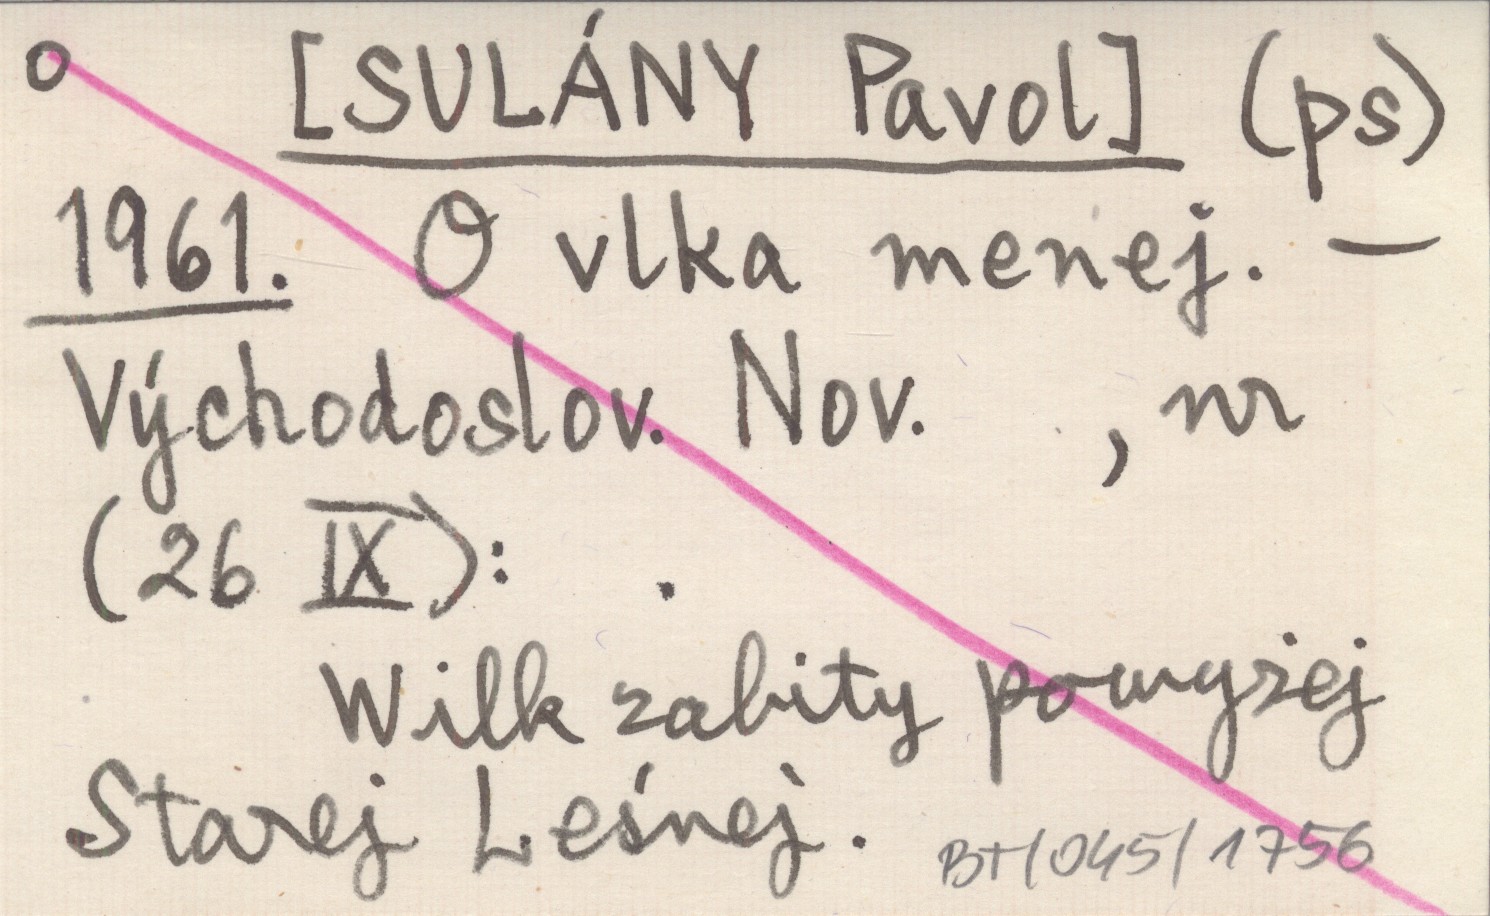 o [SULÁNY Pavol] (ps)
1961. O vlka menej. —
Východoslov. Nov. , nr
(26 IX): .
Wilk zabity powyżej
Starej Leśnej.
BT/045/1756